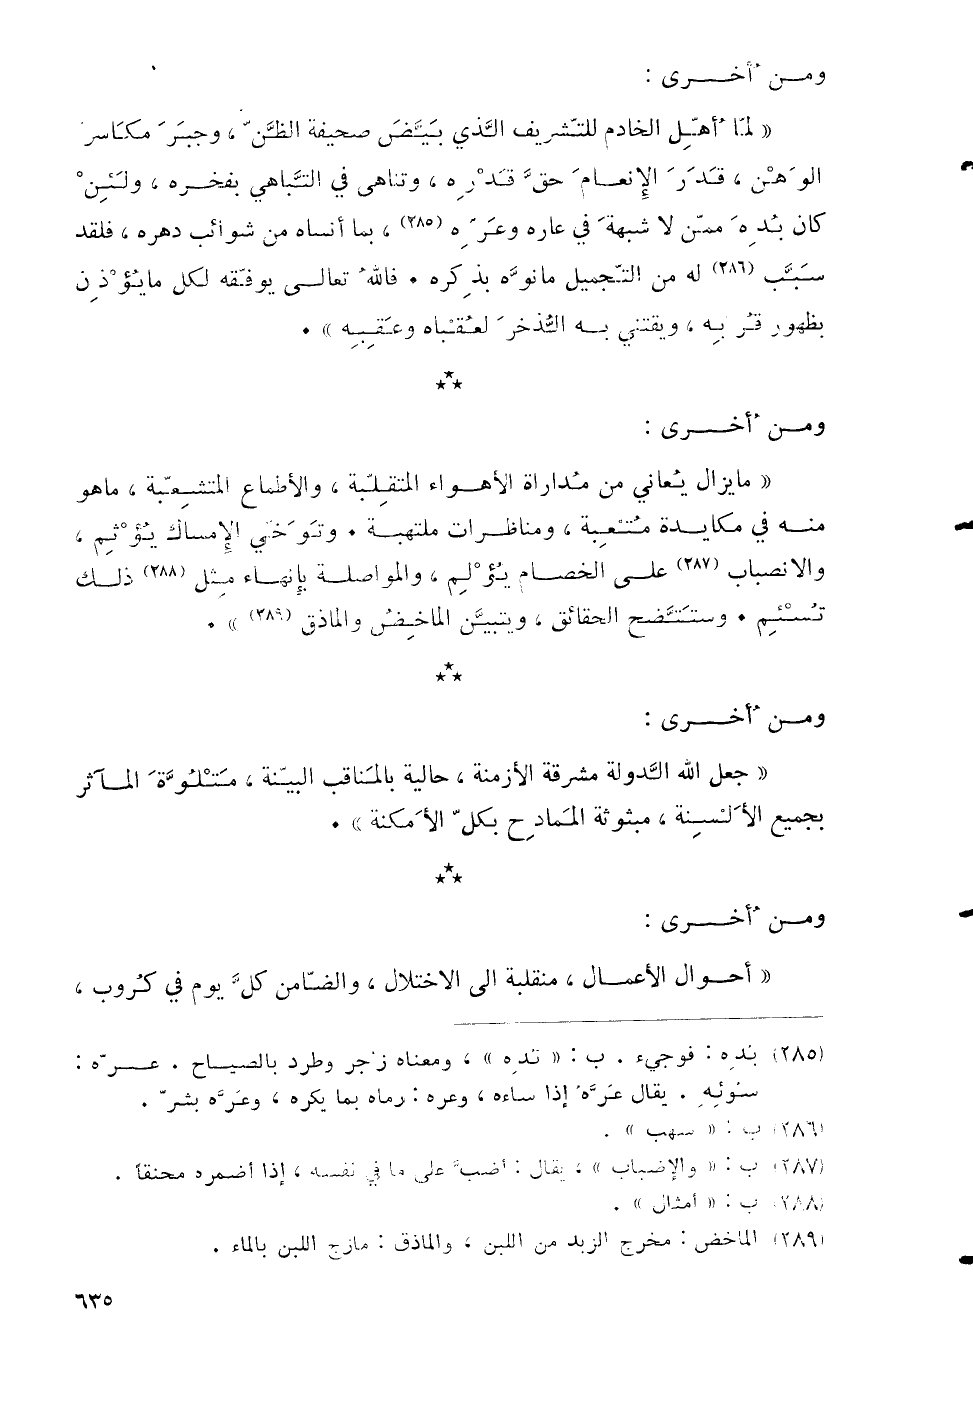 ومــن أُخــــرى :
« لمّا أُهِّل الخادم للتّشريف الَّذي بَيَّضَ صحيفة الظَّنّ ، وجبَرَ مكاسر
الوَهْن ، قَدَرَ الإنعــامَ حقَّ قَدْرِه ، وتناهى في التَّباهي بفخــره ، ولَئِنْ
كان بُدِهَ ممّن لا شبهةَ في عاره وعَرِّه (٢٨٥) ، بما أنساه من شوائب دهره ، فلقد
سَبَّب (٢٨٦) له من التّجميل مانوَّه بذِكره • فاللهُ تعالــى يوفّقه لكل مايُؤْذِن
بظهور قُرْبِه ، ويقتني بــه الذُّخرَ لعُقْباه وعَقِبِه » •
٭٭٭
ومــن أُخــــرى :
« مايزال يُعاني من مُداراة الأهــواء المتقلِّبة ، والأطماع المتشعِّبة ، ماهو
منــه في مكايــدة مُتْعِبة ، ومناظــرات ملتهبــة • وتَوَخّي الإِمساك يُؤْثِم ،
والانصباب (٢٨٧) علــى الخصــام يُؤْلِم ، والمواصلــة بإنهــاء مِثل (٢٨٨) ذلــك
تُسْئِم • وستَتَّضح الحقائق ، ويتبيَّن الماخِضُ والماذق (٢٨٩) » •
٭٭٭
ومــن أُخــــرى :
« جعل الله الدَّولة مشرقة الأزمنة ، حالية بالمَناقب البيّنة ، مَتْلُوَّةَ المــآثر
بجميع الأَلْسِنة ، مبثوثة المَمادِح بكلّ الأَمكنة » •
٭٭٭
ومــن أُخــــرى :
« أحــوال الأعمــال ، منقلبة الى الاختلال ، والضّامن كلَّ يوم في كُروب ،
(٢٨٥) بُدِه : فوجيء . ب : « نده » ، ومعناه زجر وطرد بالصيــاح . عــرّه :
سَوْئِهِ . يقال عَرَّهُ إذا ساءه ، وعره : رماه بما يكره ، وعَرَّه بشرّ .
(٢٨٦) ب : « سهب » .
(٢٨٧) ب : « والإضباب » ، يقال : أضبَّ على ما في نفسه ، إذا أضمره محنقاً .
(٢٨٨) ب : « أمثال » .
(٢٨٩) الماخض : مخرج الزبد من اللبن ، والماذق : مازج اللبن بالماء .
٦٣٥